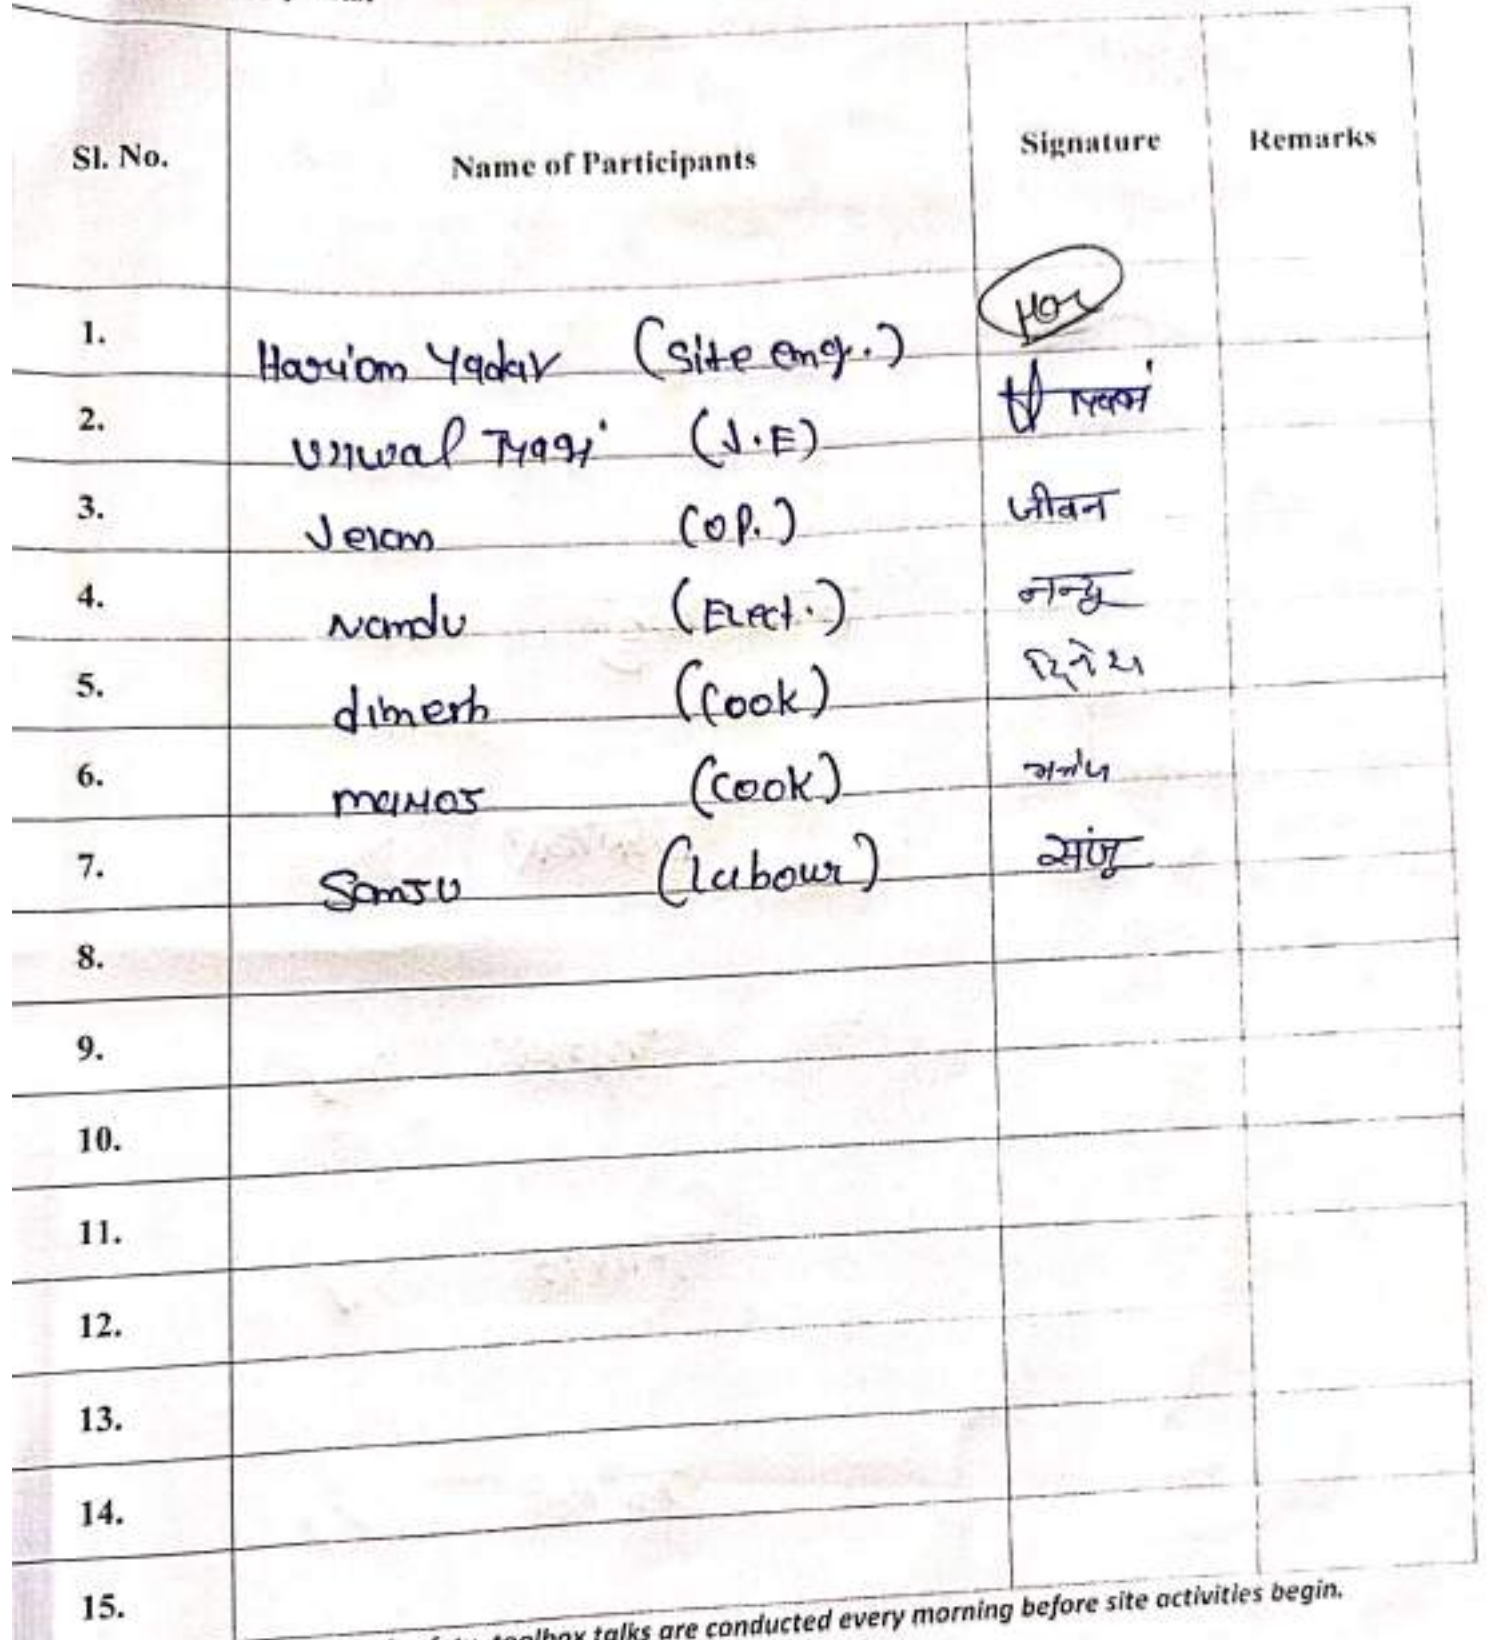 Sl. No. Name of Participants Signature Remarks
1. Hariom Yadav (Site eng.)
2. (J.E)
3. (OP.) जीवन
4. Nandu (Elect.) नन्दू
5. dinesh (Cook) दिनेश
6. (Cook) मनोज
7. Sanju (labour) संजू
8.
9.
10.
11.
12.
13.
14.
15.
toolbox talks are conducted every morning before site activities begin.